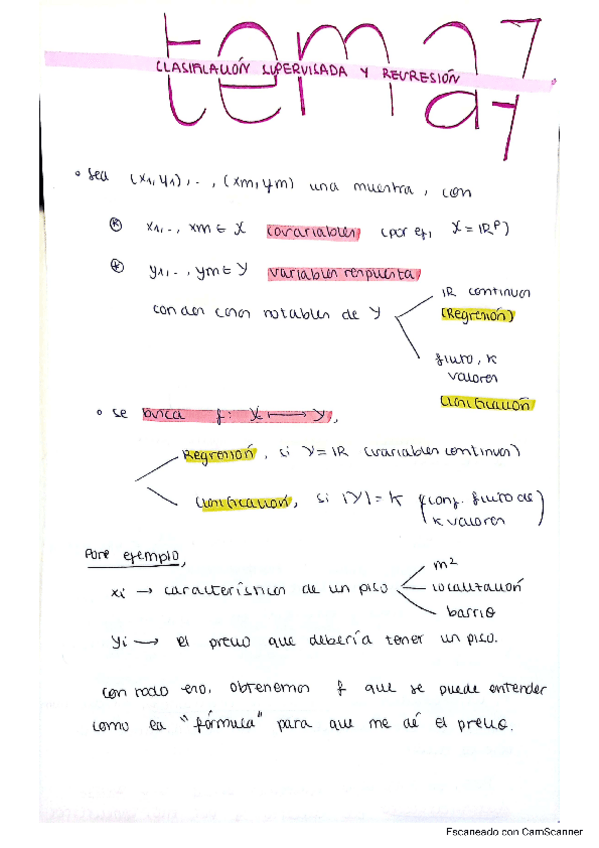 tema 7
CLASIFICACIÓN SUPERVISADA Y REGRESIÓN
• Sea (x1, y1), .., (xm, ym) una muestra, con
* x1, .., xm ∈ X covariables (por ej, X = IRᵖ)
* y1, .., ym ∈ Y variables respuesta
con dos casos notables de Y
IR continuos
(Regresión)
finito, k
valores
Clasificación
• se busca f: X ⟼ Y,
Regresión, si Y = IR (variables continuas)
Clasificación, si |Y| = K (conj. finito de
k valores)
Pore ejemplo,
xi → características de un piso
m²
localización
barrio
yi → el precio que debería tener un piso.
con todo eso, obtenemos f que se puede entender
como la "fórmula" para que me dé el precio.
Escaneado con CamScanner